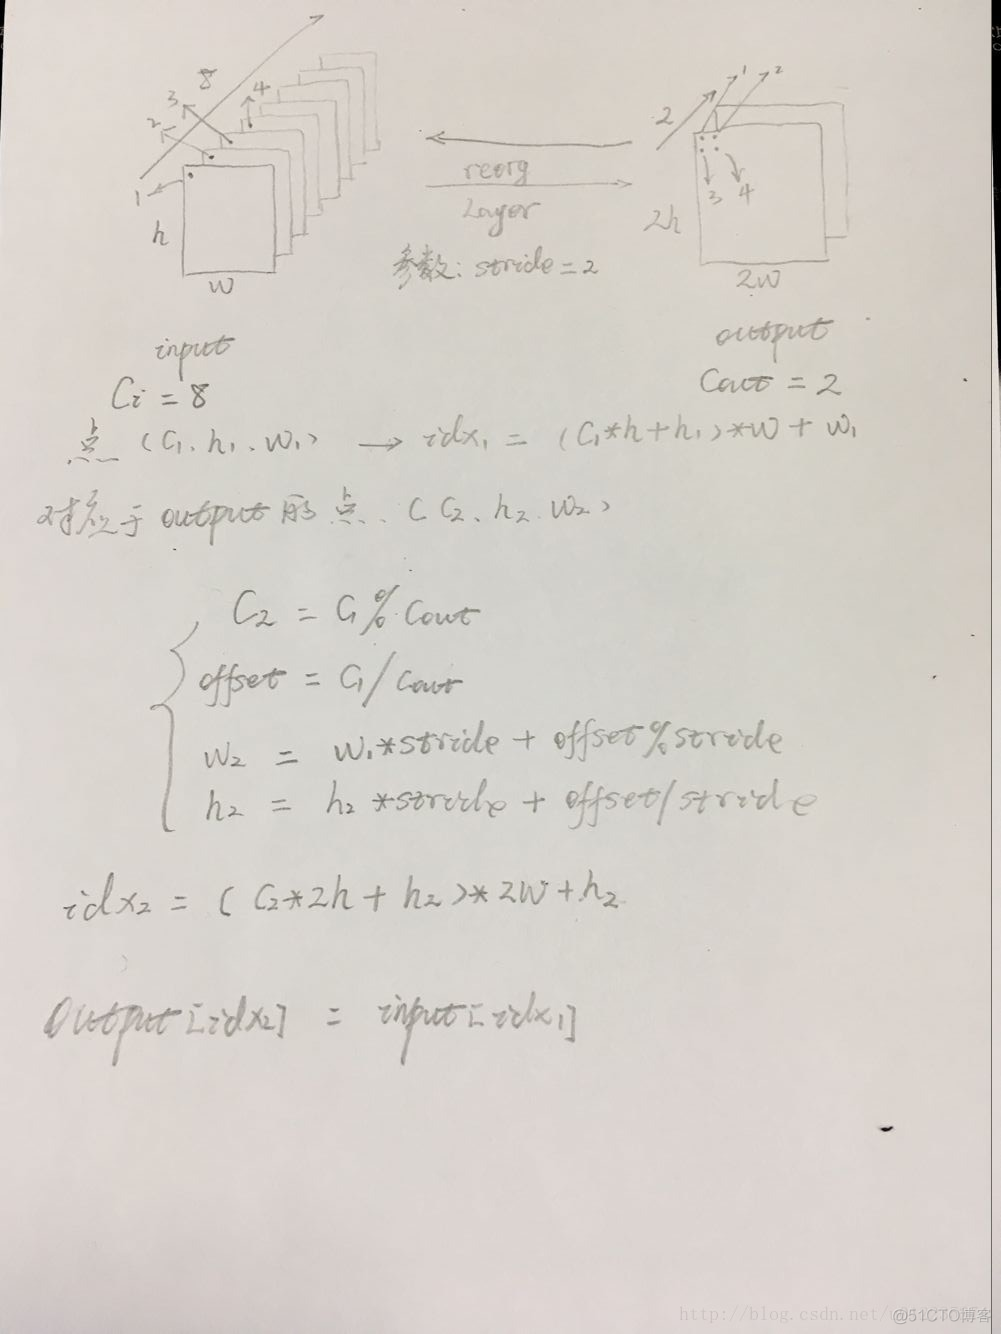 8
3
2
4
1
h
w
reorg
Layer
参数: stride = 2
2
1
2
3
4
2h
2w
input
output
Ci = 8
Cout = 2
点 (C1、h1、w1) → idx1 = (C1*h+h1)*w + w1
对应于 output 的点、(C2、h2、w2)
C2 = C1 % Cout
offset = C1 / Cout
w2 = w1*stride + offset%stride
h2 = h2 *stride + offset/stride
idx2 = (C2*2h + h2)*2w+h2
output[idx2] = input[idx1]
@51CTO博客